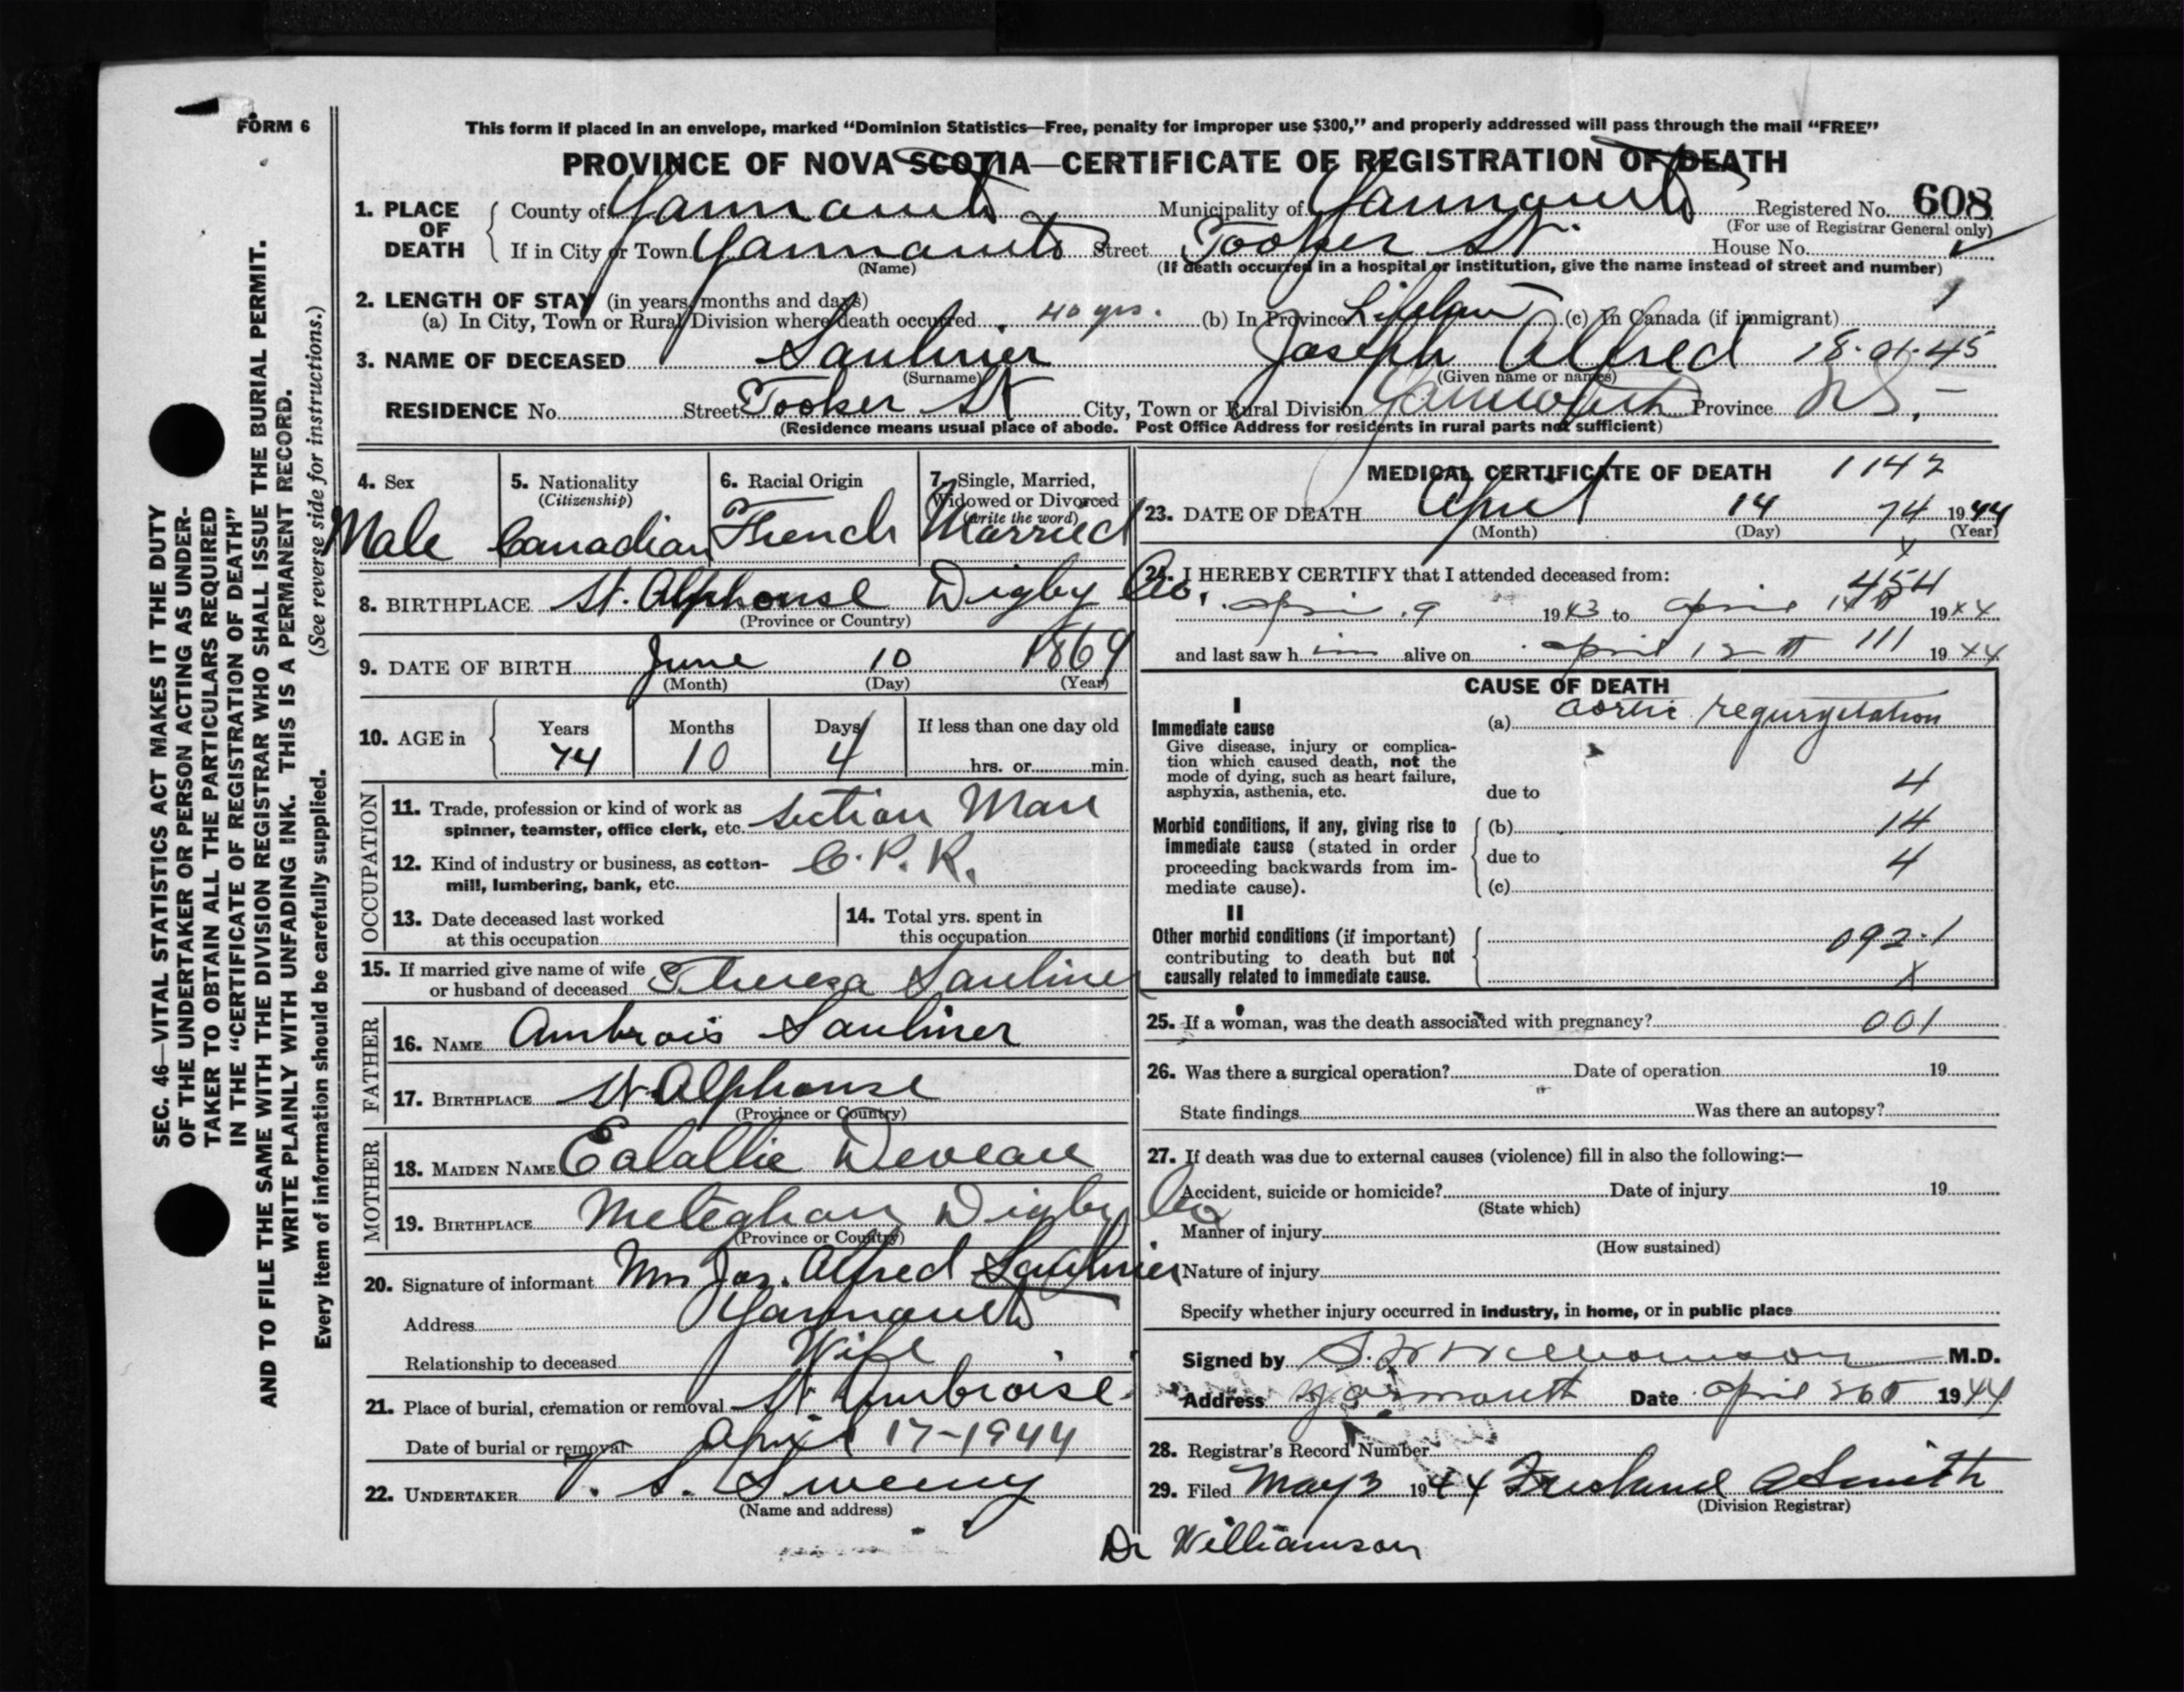 FORM 6
This form if placed in an envelope, marked “Dominion Statistics—Free, penalty for improper use $300,” and properly addressed will pass through the mail “FREE”
PROVINCE OF NOVA SCOTIA—CERTIFICATE OF REGISTRATION OF DEATH
1. PLACE OF DEATH
County of Yarmouth Municipality of Yarmouth Registered No. 608
(For use of Registrar General only)
If in City or Town Yarmouth Street Tooker St. House No.
(Name) (If death occurred in a hospital or institution, give the name instead of street and number)
2. LENGTH OF STAY (in years, months and days)
(a) In City, Town or Rural Division where death occurred 40 yrs. (b) In Province Lifetime (c) In Canada (if immigrant) 1
3. NAME OF DECEASED Saulnier Joseph Alfred 18.01.45
(Surname) (Given name or names)
RESIDENCE No. Street Tooker St City, Town or Rural Division Yarmouth Province N.S.
(Residence means usual place of abode. Post Office Address for residents in rural parts not sufficient)
4. Sex
Male
5. Nationality
(Citizenship)
Canadian
6. Racial Origin
French
7. Single, Married, Widowed or Divorced
(write the word)
Married
8. BIRTHPLACE St. Alphonse Digby Co.
(Province or Country)
9. DATE OF BIRTH June 10 1869
(Month) (Day) (Year)
10. AGE in
Years Months Days If less than one day old
74 10 4 hrs. or min.
OCCUPATION
11. Trade, profession or kind of work as
spinner, teamster, office clerk, etc. Section Man
12. Kind of industry or business, as cotton-
mill, lumbering, bank, etc. C.P.R.
13. Date deceased last worked
at this occupation
14. Total yrs. spent in
this occupation
15. If married give name of wife
or husband of deceased Theresa Saulnier
FATHER
16. NAME Ambrois Saulnier
17. BIRTHPLACE St Alphonse
(Province or Country)
MOTHER
18. MAIDEN NAME Ealallie Deveau
19. BIRTHPLACE Meteghan Digby Co
(Province or Country)
20. Signature of informant Mrs Jos. Alfred Saulnier
Address Yarmouth
Relationship to deceased Wife
21. Place of burial, cremation or removal St Ambroise
Date of burial or removal April 17-1944
22. UNDERTAKER V. S. Sweeny
(Name and address)
MEDICAL CERTIFICATE OF DEATH 1147
23. DATE OF DEATH April 14 74 1944
(Month) (Day) (Year)
X
24. I HEREBY CERTIFY that I attended deceased from:
454
april 9 1943 to april 14th 1944
and last saw h im alive on april 12th 111 1944
CAUSE OF DEATH
I
Immediate cause
Give disease, injury or complica-
tion which caused death, not the
mode of dying, such as heart failure,
asphyxia, asthenia, etc.
(a) aortic regurgitation
due to 4
Morbid conditions, if any, giving rise to
immediate cause (stated in order
proceeding backwards from im-
mediate cause).
(b) 14
due to 4
(c)
II
Other morbid conditions (if important)
contributing to death but not
causally related to immediate cause.
092.1
X
25. If a woman, was the death associated with pregnancy? 001
26. Was there a surgical operation? Date of operation 19
State findings Was there an autopsy?
27. If death was due to external causes (violence) fill in also the following:—
Accident, suicide or homicide? Date of injury 19
(State which)
Manner of injury
(How sustained)
Nature of injury
Specify whether injury occurred in industry, in home, or in public place
Signed by S. W Williamson M.D.
Address Yarmouth Date april 26th 1944
28. Registrar's Record Number
29. Filed May 3 1944 A Smith
(Division Registrar)
Dr Williamson
SEC. 46—VITAL STATISTICS ACT MAKES IT THE DUTY
OF THE UNDERTAKER OR PERSON ACTING AS UNDER-
TAKER TO OBTAIN ALL THE PARTICULARS REQUIRED
IN THE “CERTIFICATE OF REGISTRATION OF DEATH”
AND TO FILE THE SAME WITH THE DIVISION REGISTRAR WHO SHALL ISSUE THE BURIAL PERMIT.
WRITE PLAINLY WITH UNFADING INK. THIS IS A PERMANENT RECORD.
Every item of information should be carefully supplied. (See reverse side for instructions.)